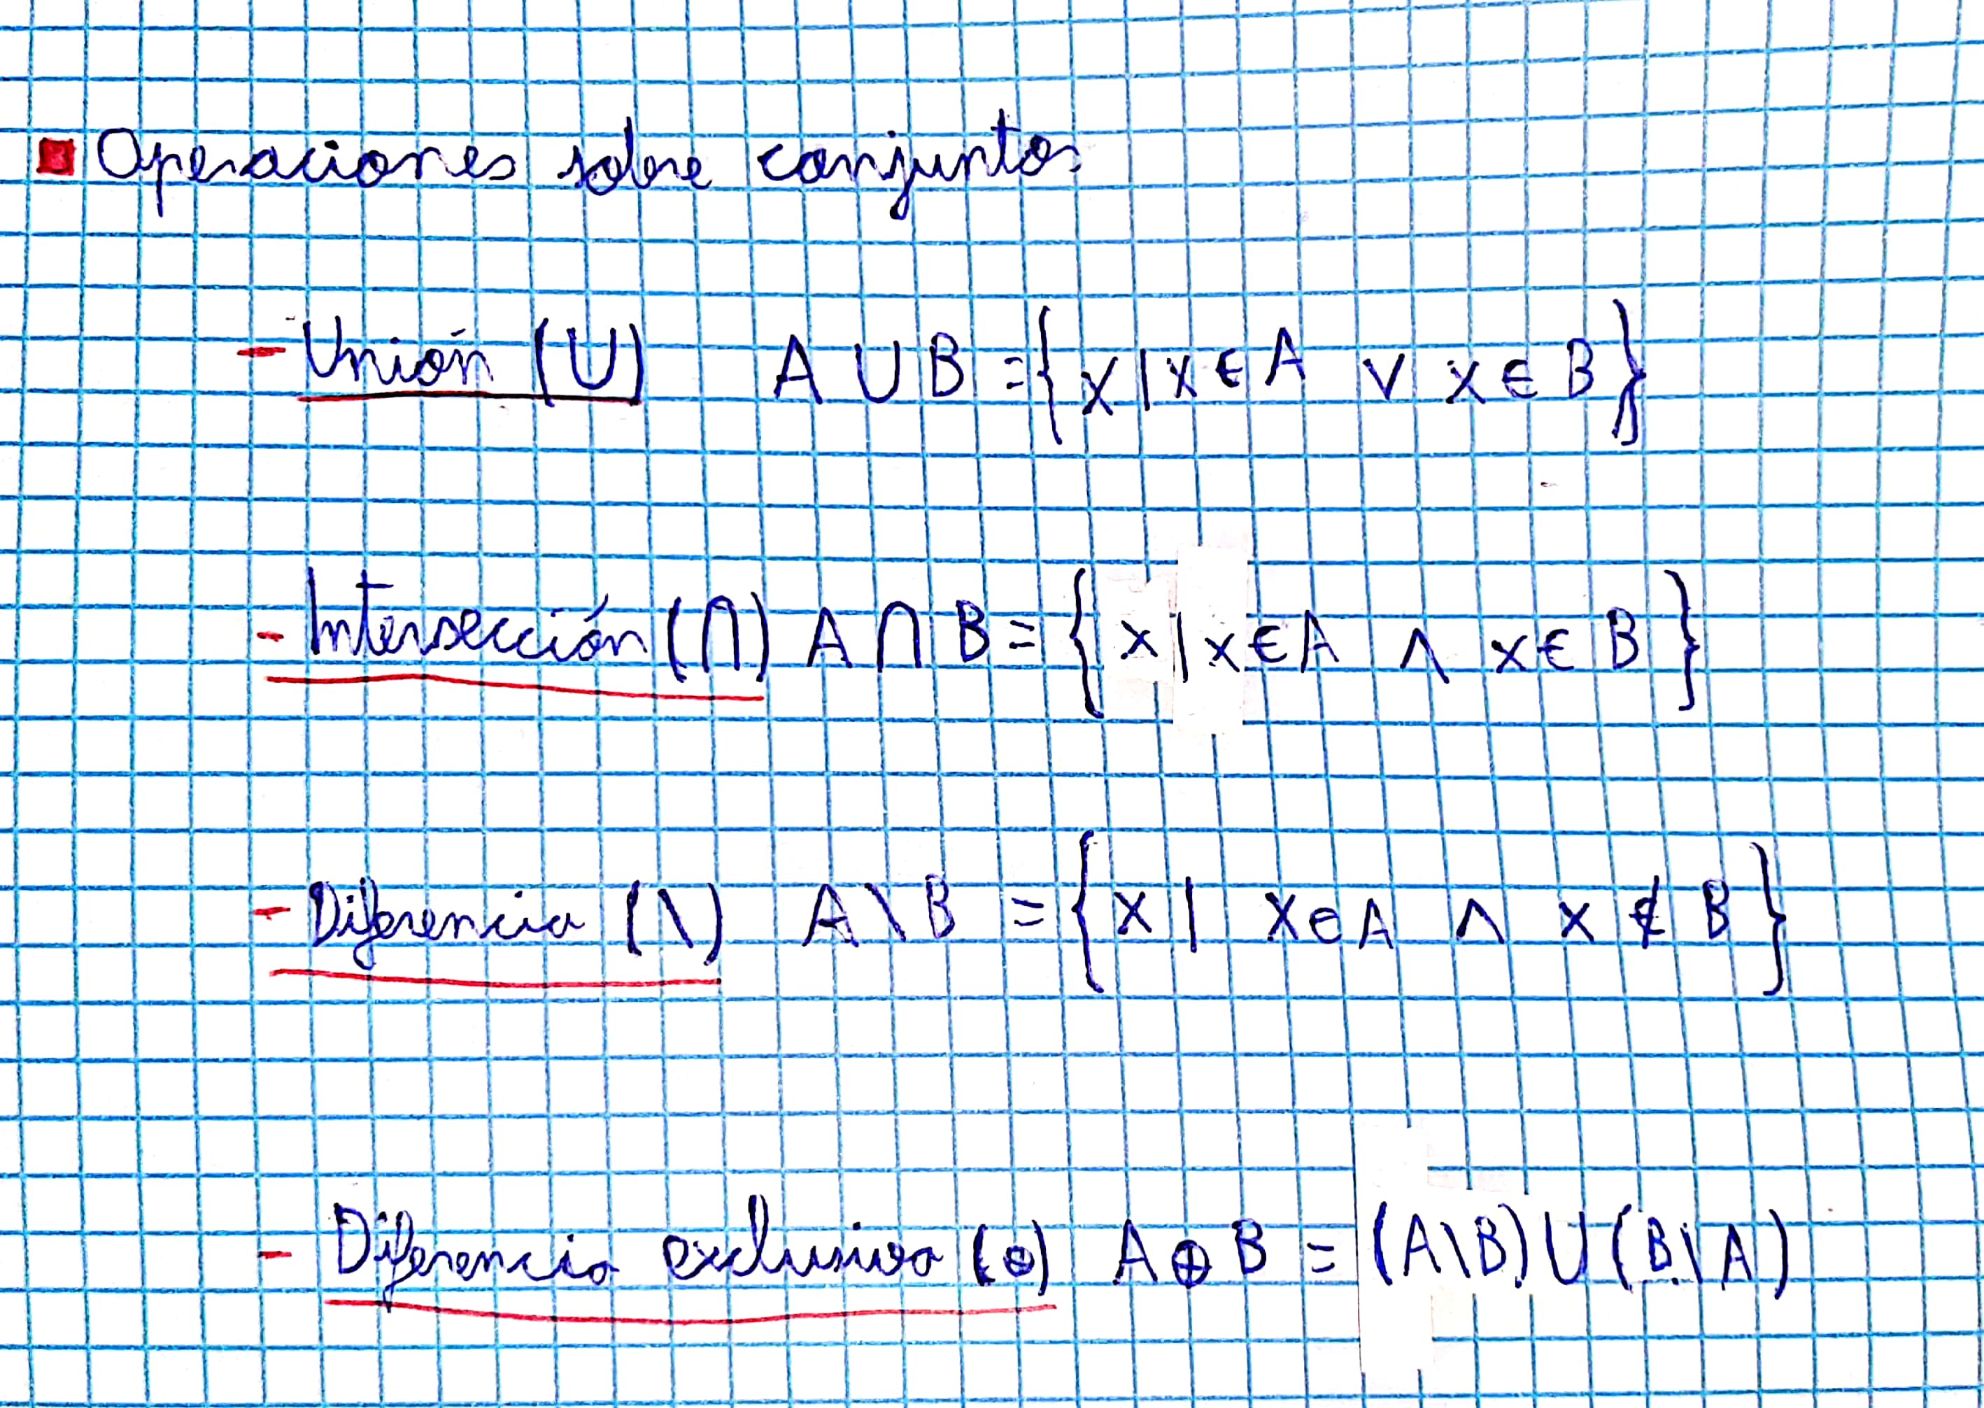 Operaciones sobre conjuntos
- Unión (∪) A ∪ B = {x | x ∈ A ∨ x ∈ B}
- Intersección (∩) A ∩ B = {x | x ∈ A ∧ x ∈ B}
- Diferencia (\) A \ B = {x | x ∈ A ∧ x ∉ B}
- Diferencia exclusiva (⊕) A ⊕ B = (A\B) ∪ (B\A)